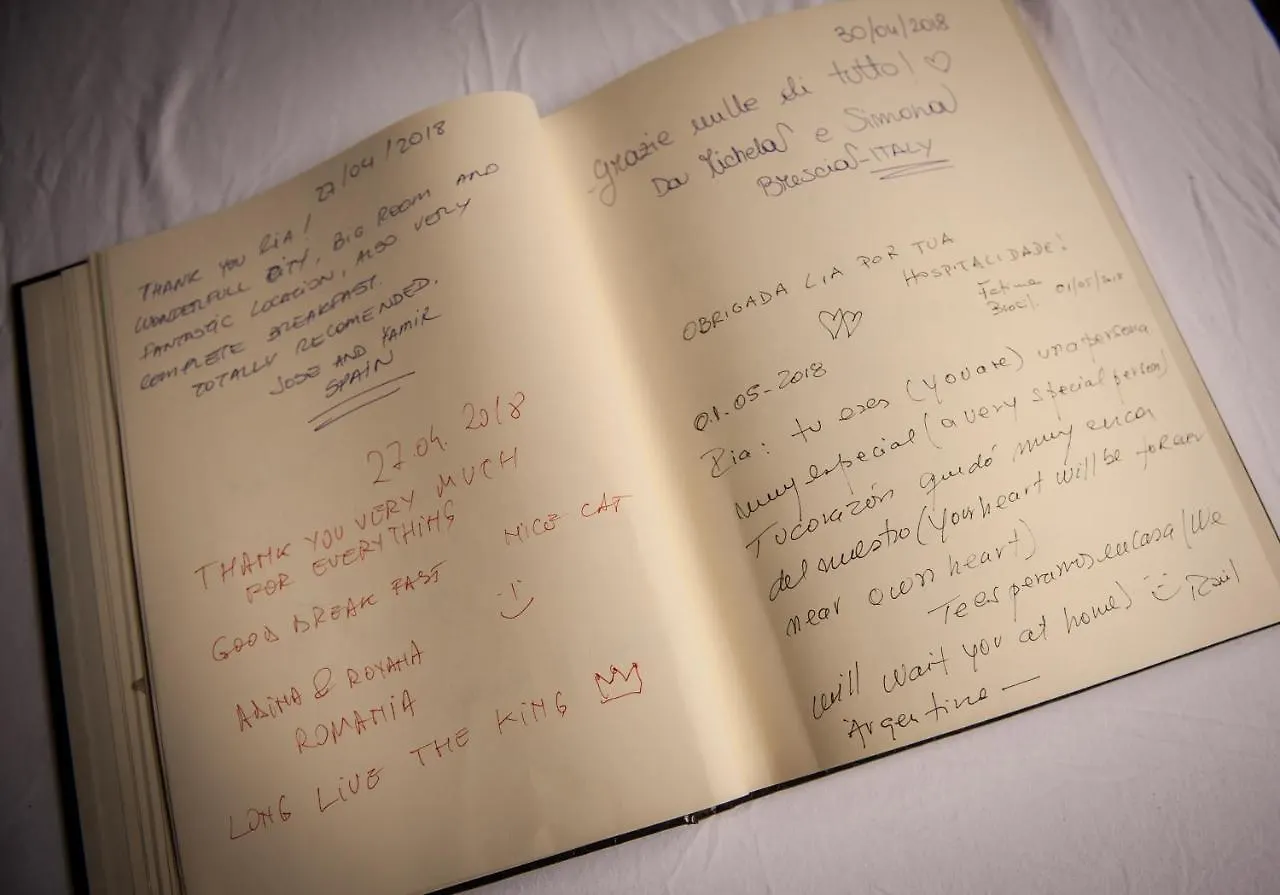 27/04/2018
THANK YOU RIA!
WONDERFULL CITY, BIG ROOM AND
FANTASTIC LOCACION, ALSO VERY
COMPLETE BREAKFAST.
TOTALLY RECOMENDED.
JOSE AND YAMIR
SPAIN
27.04.2018
THANK YOU VERY MUCH
FOR EVERYTHING
GOOD BREAK FAST NICE CAT
:)
& ROXANA
ROMANIA
LONG LIVE THE KING
30/04/2018
Grazie mille di tutto! ♡
Da Michela e Simona
Brescia-ITALY
OBRIGADA LIA POR TUA
HOSPITALIDADE!
Fatima
Brasil 01/05/2018
01.05-2018
Ria: tu eres (you are) una persona
muy especial (a very special person)
Tu corazón quedó muy cerca
del nuestro (your heart will be forever
near own heart)
Te esperamos en casa (We
will wait you at home) :) Raúl
Argentina —